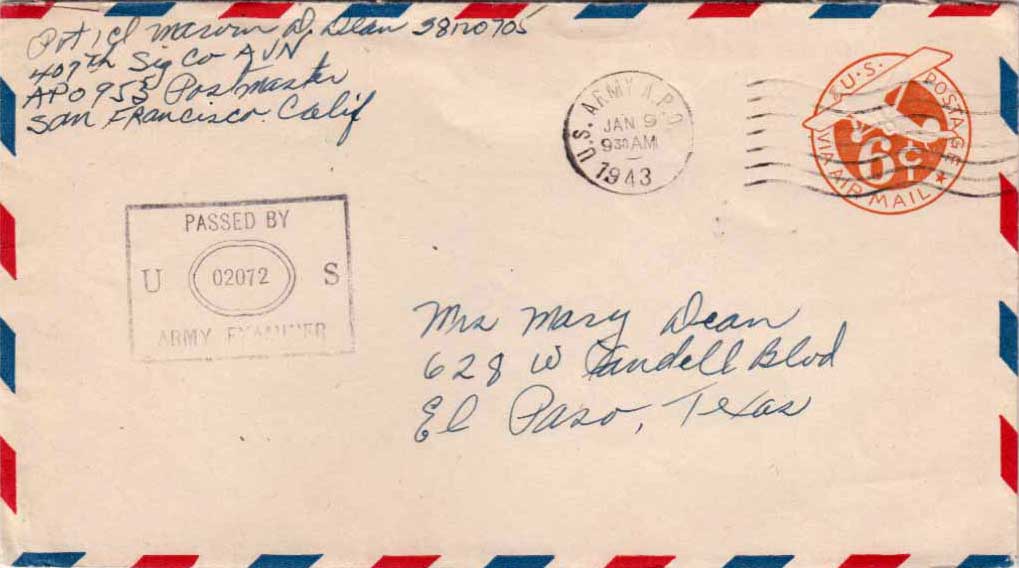 Pvt 1cl Marvin D. Dean 38120705
407th Sig Co AVN
APO 953 Postmaster
San Francisco. Calif
U.S. ARMY A.P.O.
JAN 9
930 AM
1943
U.S. POSTAGE
6¢
VIA AIR MAIL
PASSED BY
U 02072 S
ARMY EXAMINER
Mrs Mary Dean
628 W Yandell Blvd
El Paso, Texas